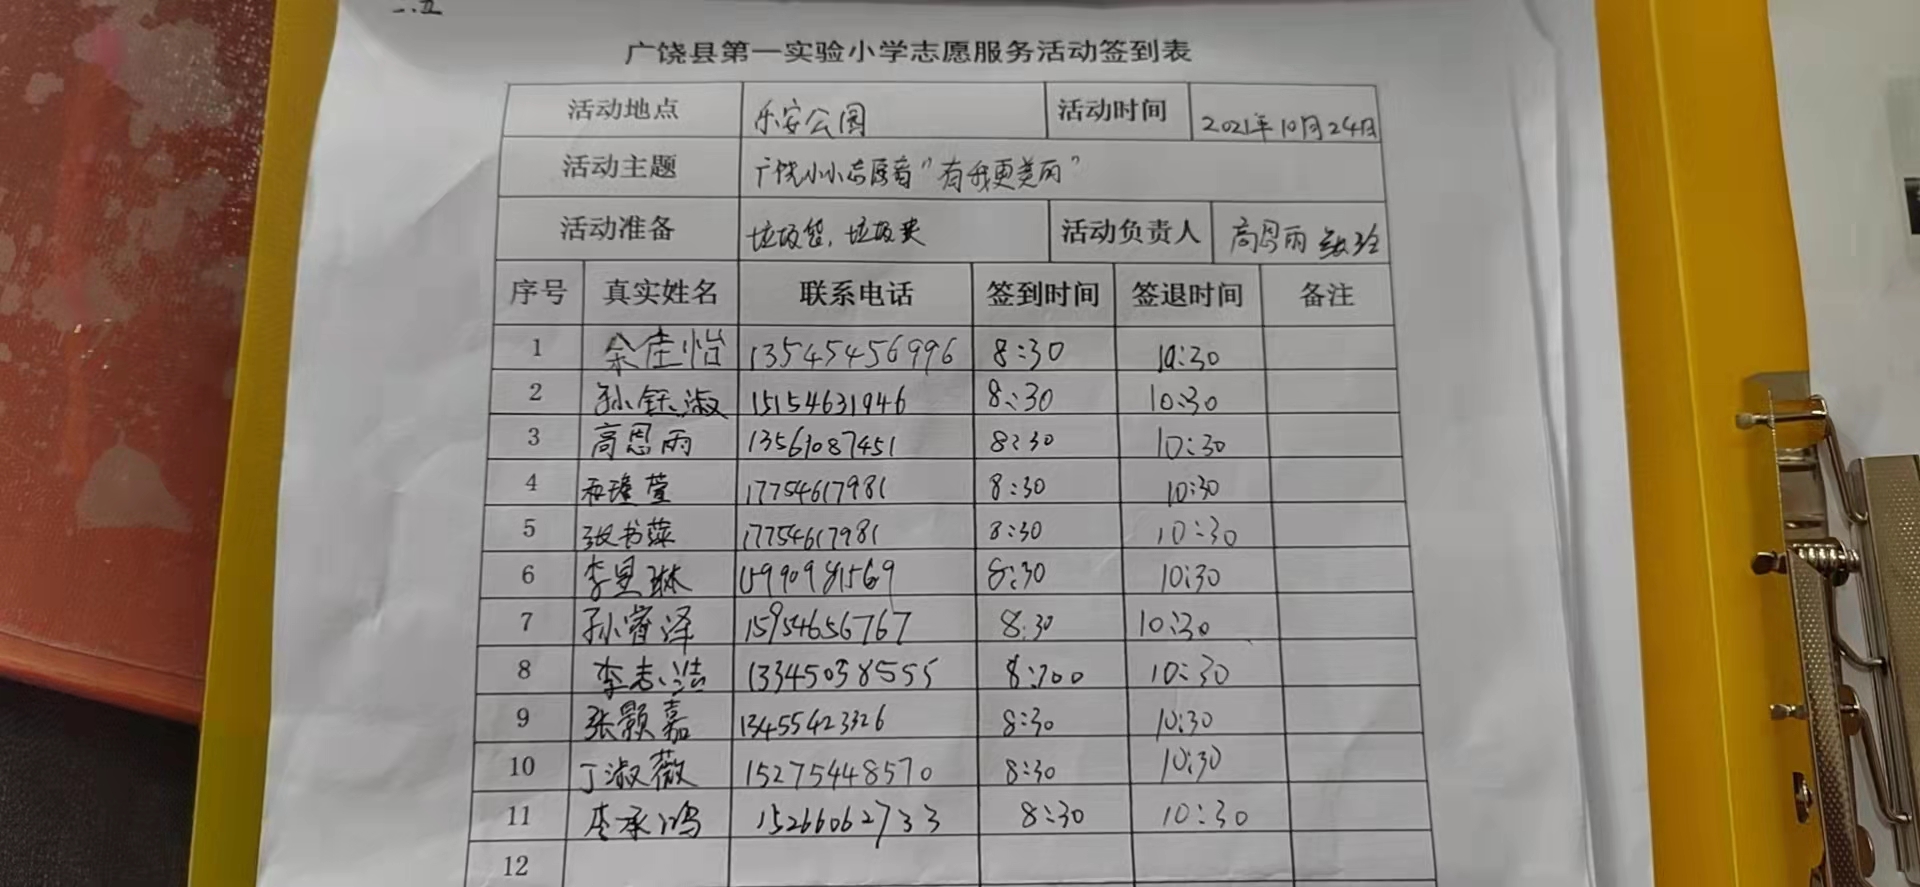 广饶县第一实验小学志愿服务活动签到表
活动地点 乐安公园 活动时间 2021年10月24日
活动主题 广饶小小志愿者"有我更美丽"
活动准备 垃圾袋，垃圾夹 活动负责人 高恩雨
序号 真实姓名 联系电话 签到时间 签退时间 备注
1 余佳怡 13545456996 8:30 10:30
2 孙钰淑 15154631946 8:30 10:30
3 高恩雨 13561087451 8:30 10:30
4 17754617981 8:30 10:30
5 张书萍 17754617981 8:30 10:30
6 李昱琳 15990981569 8:30 10:30
7 孙睿泽 15954656767 8:30 10:30
8 李志浩 13345058555 8:300 10:30
9 张颢嘉 13455423326 8:30 10:30
10 丁淑薇 15275448570 8:30 10:30
11 李承鸿 15266062733 8:30 10:30
12